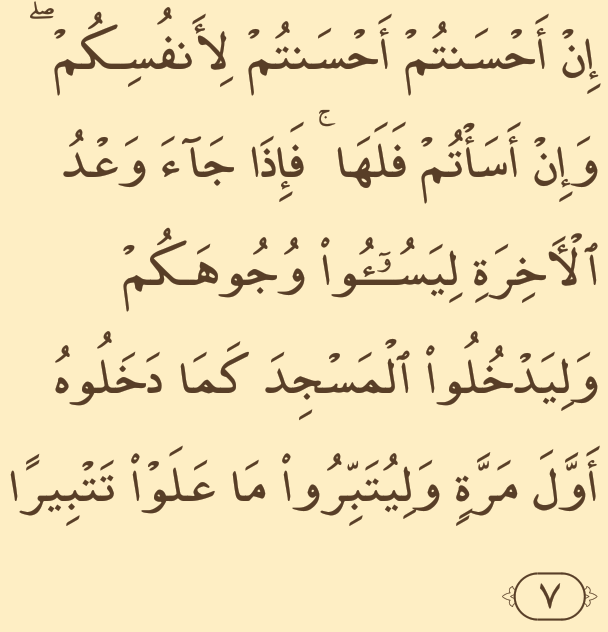 إِنْ أَحْسَنتُمْ أَحْسَنتُمْ لِأَنفُسِكُمْ ۖ
وَإِنْ أَسَأْتُمْ فَلَهَا ۚ فَإِذَا جَآءَ وَعْدُ
ٱلْأَخِرَةِ لِيَسُـۥٓـُٔوا۟ وُجُوهَكُمْ
وَلِيَدْخُلُوا۟ ٱلْمَسْجِدَ كَمَا دَخَلُوهُ
أَوَّلَ مَرَّةٍ وَلِيُتَبِّرُوا۟ مَا عَلَوْا۟ تَتْبِيرًا
٧